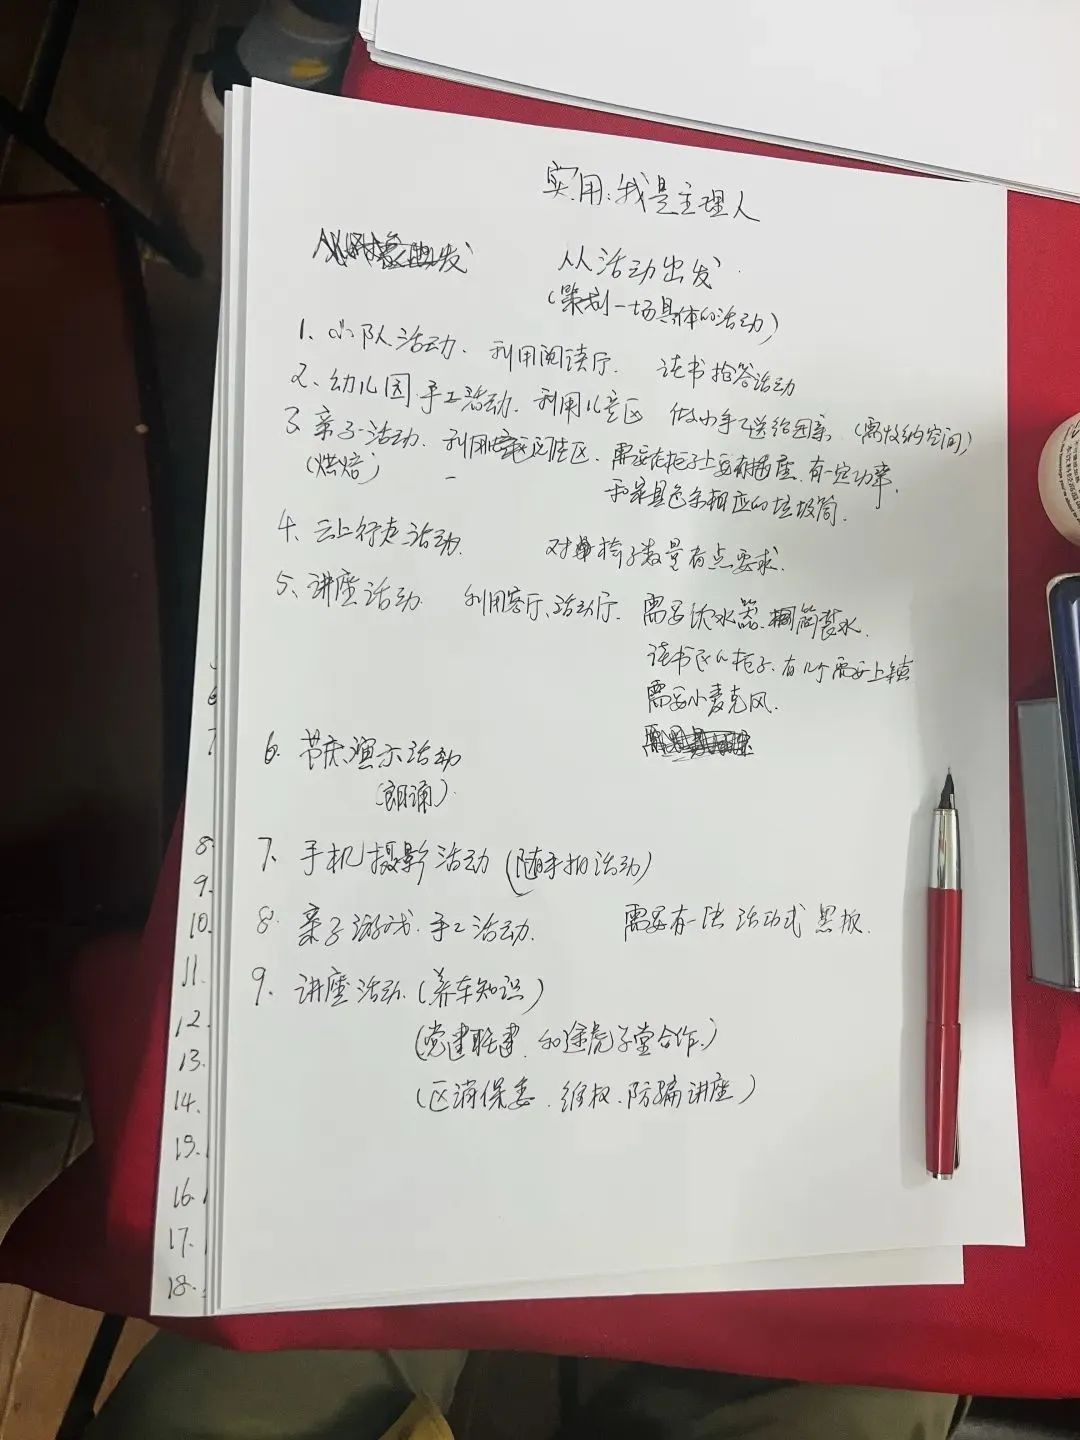 实用:我是主理人
从活动出发
(策划一场具体的活动)
1、小队活动. 利用阅读厅. 读书抢答活动
2、幼儿园手工活动. 利用儿童区 做小手工送给母亲 (需收纳空间)
3、亲子活动. 利用 区. 需要在柜子上要有插座. 有一定功率.
(烘焙)
相应的垃圾筒.
4、云上行走活动. 对椅子数量有点要求.
5、讲座活动. 利用客厅、活动厅. 需要饮水器. 筒装水.
读书区的柜子. 有几个需要上锁
需要小麦克风.
6. 节庆演示活动
(朗诵).
7、手机摄影活动 (随手拍活动)
8. 亲子游戏.手工活动. 需要有一块活动式黑板.
9、讲座活动. (养车知识)
(党建联建. 和途虎 合作.)
(区消保委. 维权. 防骗讲座)
6
7
8.
9.
10.
11.
12.
13.
14.
15.
16.
17.
18.